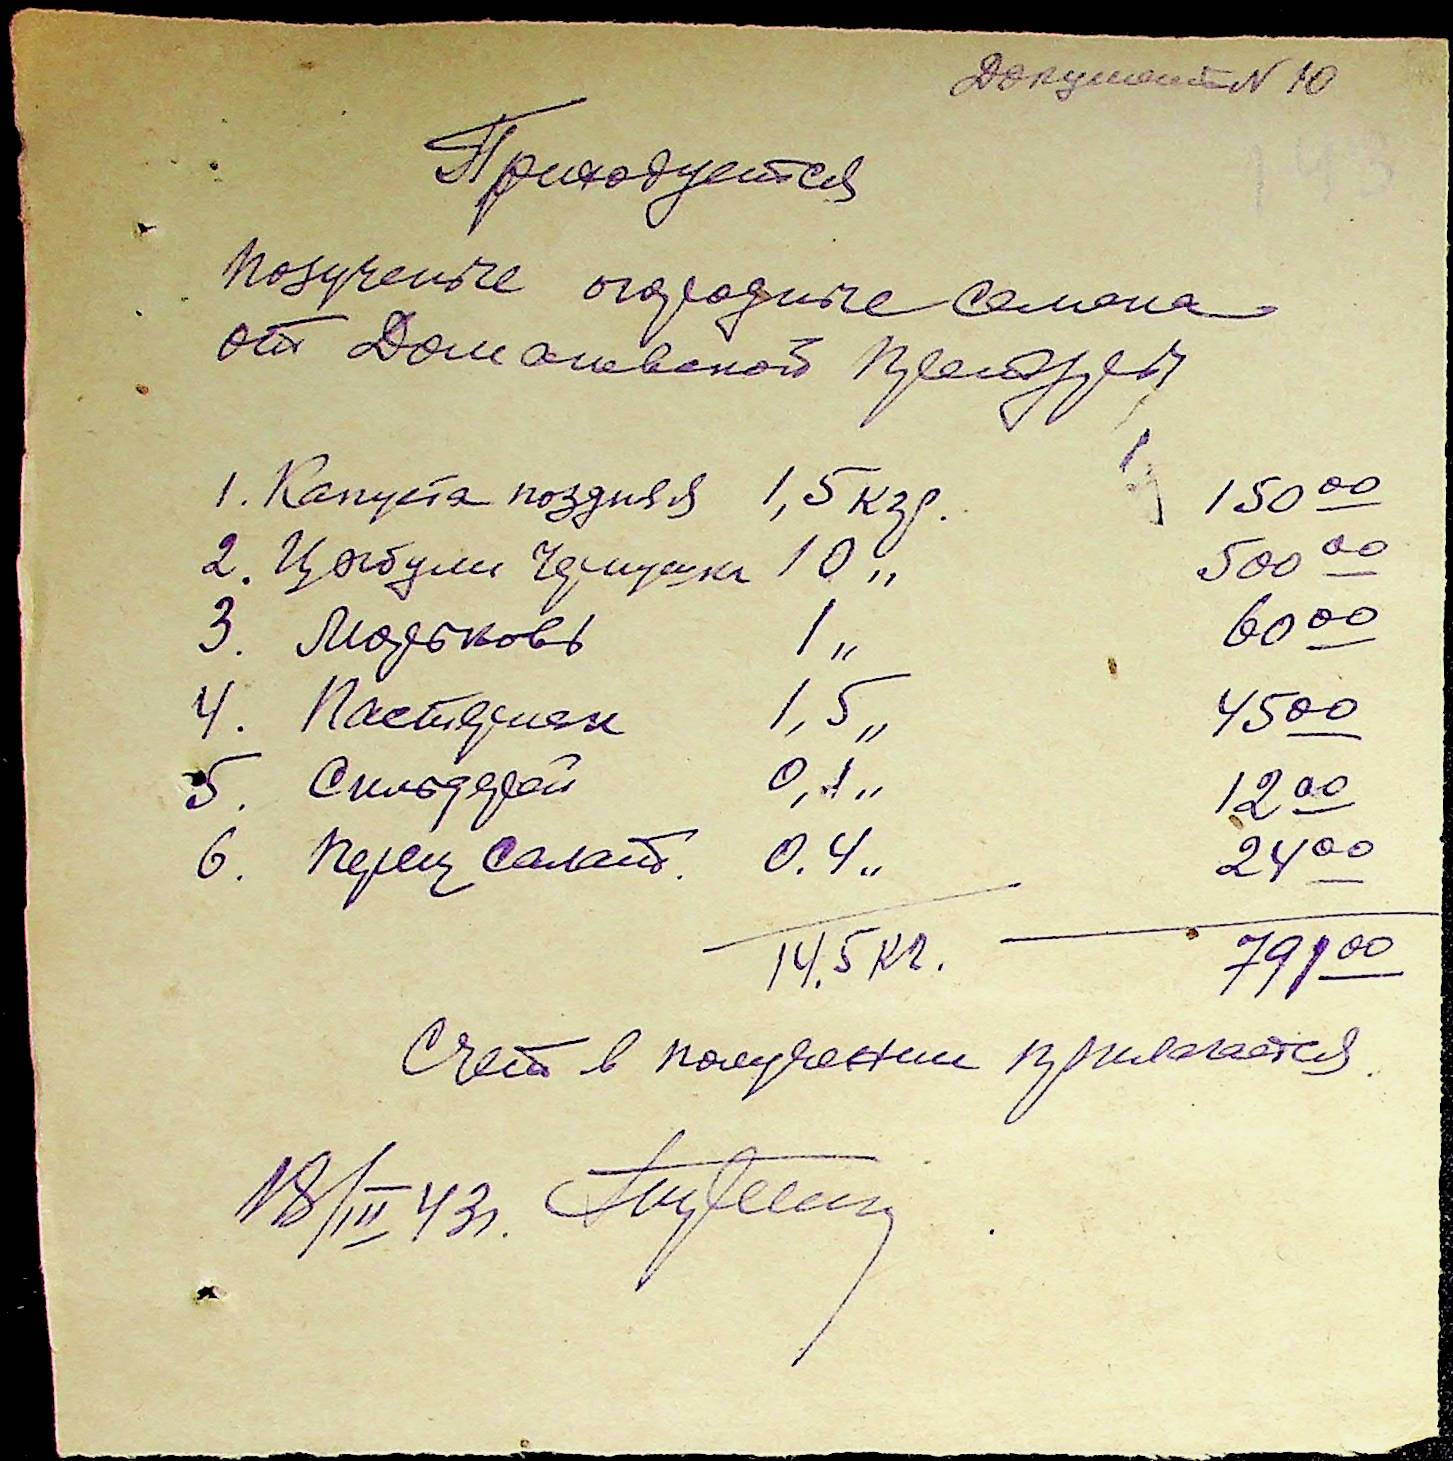 Документ N 10
143
Приходуется
Полученые огородные семена
от Домашевской
1. Капуста поздняя 1,5 кгр. 150 00
2. Цыбули Чернушки 10 „ 500 00
3. Морьковь 1 „ 60 00
4. Пастернак 1,5 „ 45 00
5. Сильдерей 0,1 „ 12 00
6. Перец Салат. 0.4 „ 24 00
14.5 кг. 791 00
Счет в получении прилагается.
18/III 43г.